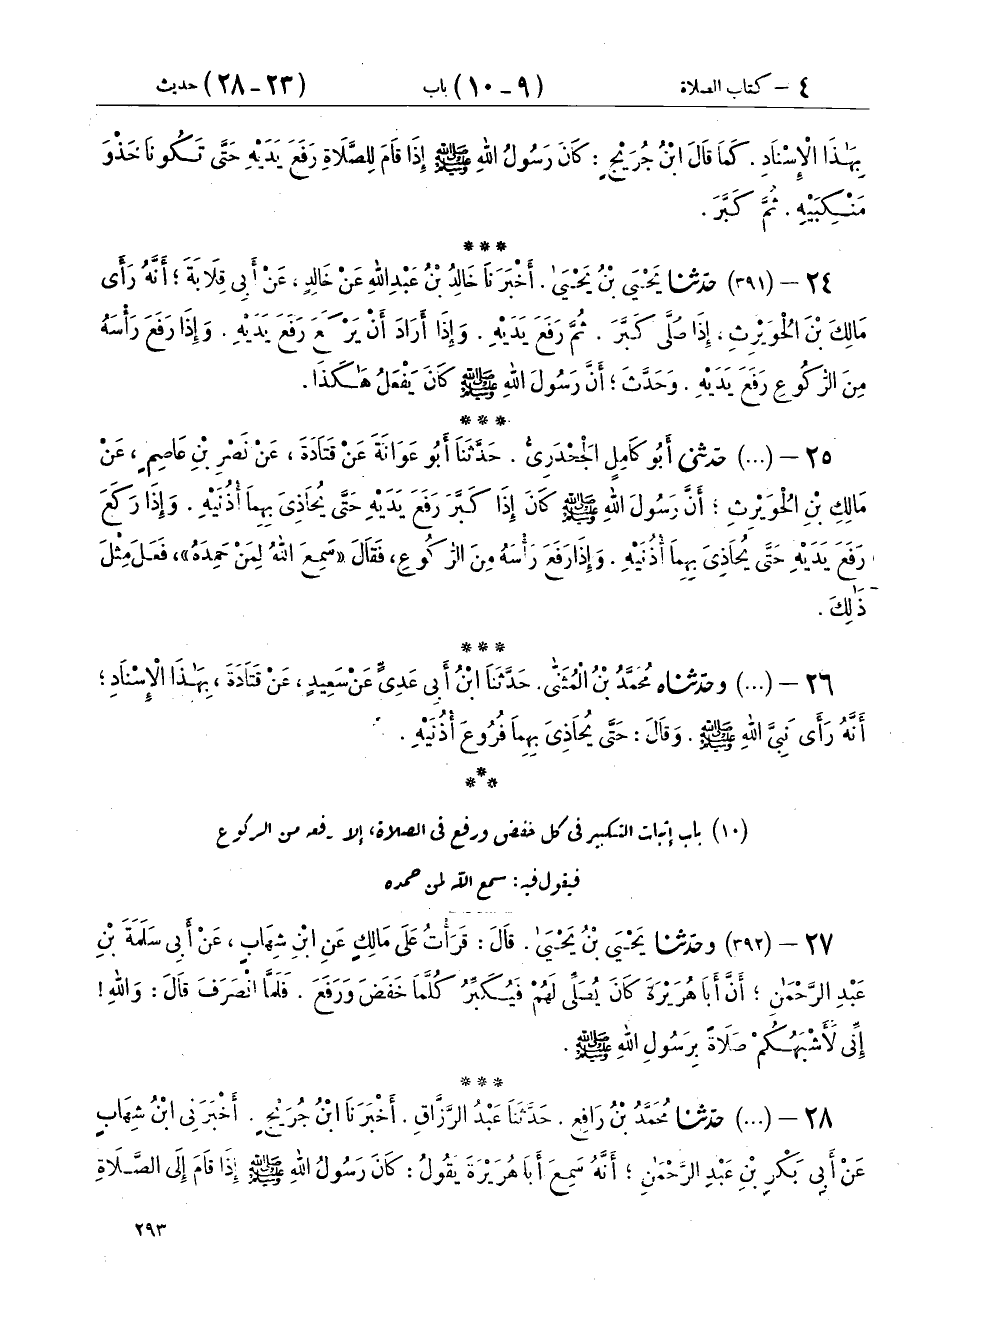 ٤ – كتاب الصلاة (٩ – ١٠) باب (٢٣ – ٢٨) حديث
بِهَٰذَا الْإِسْنَادِ . كَمَا قَالَ ابْنُ جُرَيْجٍ : كَانَ رَسُولُ اللهِ ﷺ إِذَا قَامَ لِلصَّلَاةِ رَفَعَ يَدَيْهِ حَتَّى تَكُونَا حَذْوَ
مَنْكِبَيْهِ . ثُمَّ كَبَّرَ .
***
٢٤ – (٣٩١) حَدَّثَنَا يَحْيَىٰ بْنُ يَحْيَىٰ . أَخْبَرَنَا خَالِدُ بْنُ عَبْدِ اللهِ عَنْ خَالِدٍ ، عَنْ أَبِي قِلَابَةَ ؛ أَنَّهُ رَأَى
مَالِكَ بْنَ الْحُوَيْرِثِ ، إِذَا صَلَّى كَبَّرَ . ثُمَّ رَفَعَ يَدَيْهِ . وَإِذَا أَرَادَ أَنْ يَرْكَعَ رَفَعَ يَدَيْهِ . وَإِذَا رَفَعَ رَأْسَهُ
مِنَ الرُّكُوعِ رَفَعَ يَدَيْهِ . وَحَدَّثَ ؛ أَنَّ رَسُولَ اللهِ ﷺ كَانَ يَفْعَلُ هَٰكَذَا .
***
٢٥ – (...) حَدَّثَنِي أَبُو كَامِلٍ الْجَحْدَرِيُّ . حَدَّثَنَا أَبُو عَوَانَةَ عَنْ قَتَادَةَ ، عَنْ نَصْرِ بْنِ عَاصِمٍ ، عَنْ
مَالِكِ بْنِ الْحُوَيْرِثِ ؛ أَنَّ رَسُولَ اللهِ ﷺ كَانَ إِذَا كَبَّرَ رَفَعَ يَدَيْهِ حَتَّى يُحَاذِيَ بِهِمَا أُذُنَيْهِ . وَإِذَا رَكَعَ
رَفَعَ يَدَيْهِ حَتَّى يُحَاذِيَ بِهِمَا أُذُنَيْهِ . وَإِذَا رَفَعَ رَأْسَهُ مِنَ الرُّكُوعِ ، فَقَالَ «سَمِعَ اللهُ لِمَنْ حَمِدَهُ» ، فَعَلَ مِثْلَ
ذَٰلِكَ .
***
٢٦ – (...) وحَدَّثَنَاه مُحَمَّدُ بْنُ الْمُثَنَّىٰ . حَدَّثَنَا ابْنُ أَبِي عَدِيٍّ عَنْ سَعِيدٍ ، عَنْ قَتَادَةَ ، بِهَٰذَا الْإِسْنَادِ ؛
أَنَّهُ رَأَى نَبِيَّ اللهِ ﷺ . وَقَالَ : حَتَّى يُحَاذِيَ بِهِمَا فُرُوعَ أُذُنَيْهِ .
***
(١٠) باب إثبات التكبير في كل خفض ورفع في الصلاة، إلا رفعه من الركوع
فيقول فيه: سمع الله لمن حمده
٢٧ – (٣٩٢) وحَدَّثَنَا يَحْيَىٰ بْنُ يَحْيَىٰ . قَالَ : قَرَأْتُ عَلَى مَالِكٍ عَنِ ابْنِ شِهَابٍ ، عَنْ أَبِي سَلَمَةَ بْنِ
عَبْدِ الرَّحْمَٰنِ ؛ أَنَّ أَبَا هُرَيْرَةَ كَانَ يُصَلِّي لَهُمْ فَيُكَبِّرُ كُلَّمَا خَفَضَ وَرَفَعَ . فَلَمَّا انْصَرَفَ قَالَ : وَاللهِ !
إِنِّي لَأَشْبَهُكُمْ صَلَاةً بِرَسُولِ اللهِ ﷺ .
***
٢٨ – (...) حَدَّثَنَا مُحَمَّدُ بْنُ رَافِعٍ . حَدَّثَنَا عَبْدُ الرَّزَّاقِ . أَخْبَرَنَا ابْنُ جُرَيْجٍ . أَخْبَرَنِي ابْنُ شِهَابٍ
عَنْ أَبِي بَكْرِ بْنِ عَبْدِ الرَّحْمَٰنِ ؛ أَنَّهُ سَمِعَ أَبَا هُرَيْرَةَ يَقُولُ : كَانَ رَسُولُ اللهِ ﷺ إِذَا قَامَ إِلَى الصَّلَاةِ
٢٩٣